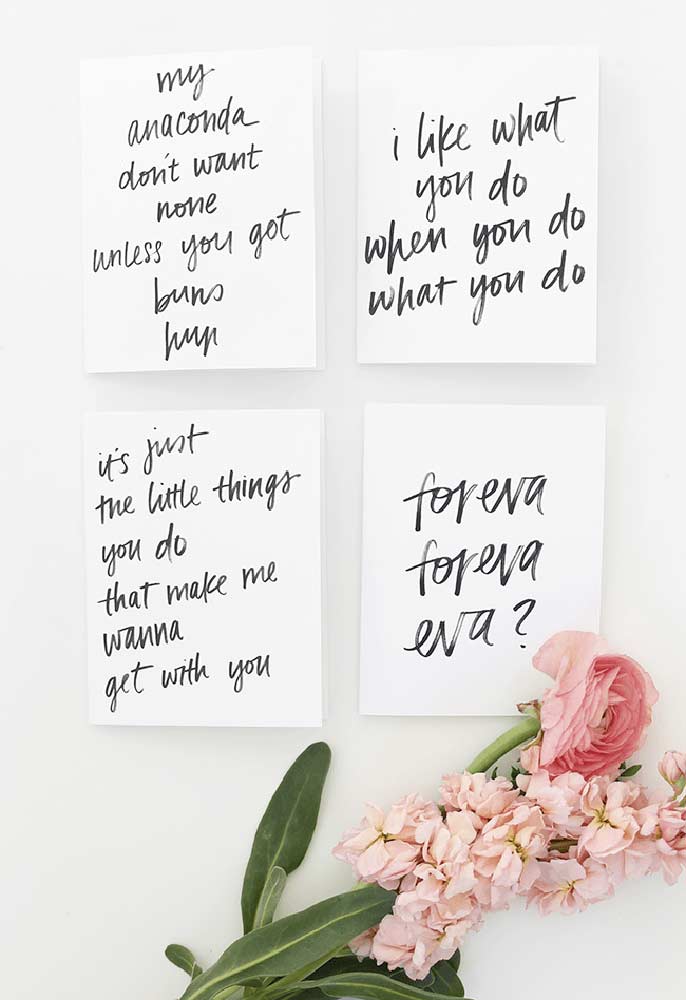 my
anaconda
don't want
none
unless you got
buns
hun
i like what
you do
when you do
what you do
it's just
the little things
you do
that make me
wanna
get with you
foreva
foreva
eva?